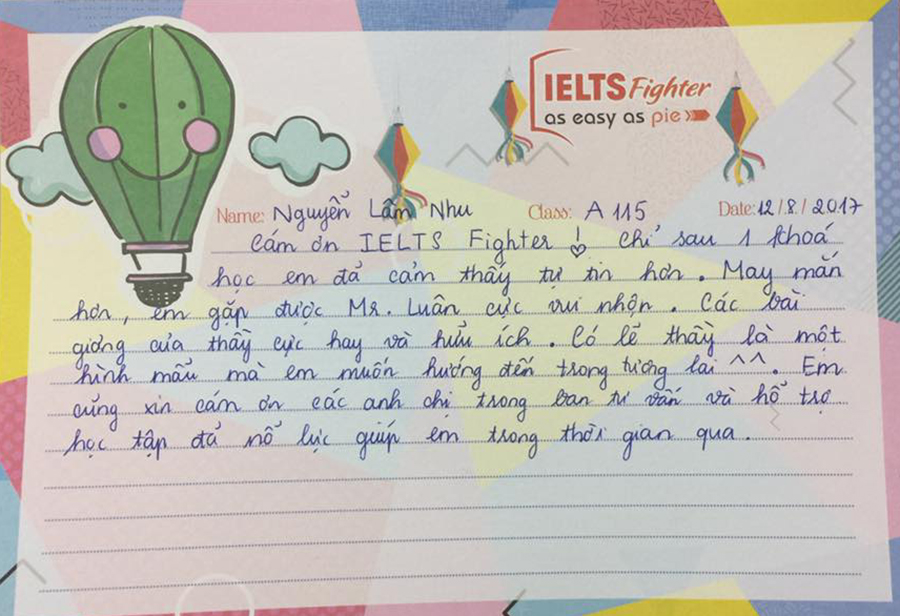 IELTS Fighter
as easy as pie
Name: Nguyễn Lâm Như Class: A 115 Date: 12/8/2017
Cám ơn IELTS Fighter! Chỉ sau 1 khoá
học em đã cảm thấy tự tin hơn. May mắn
hơn, em gặp được Mr. Luân cực vui nhộn. Các bài
giảng của thầy cực hay và hữu ích. Có lẽ thầy là một
hình mẫu mà em muốn hướng đến trong tương lai ^^. Em
cũng xin cám ơn các anh chị trong ban tư vấn và hỗ trợ
học tập đã nỗ lực giúp em trong thời gian qua.